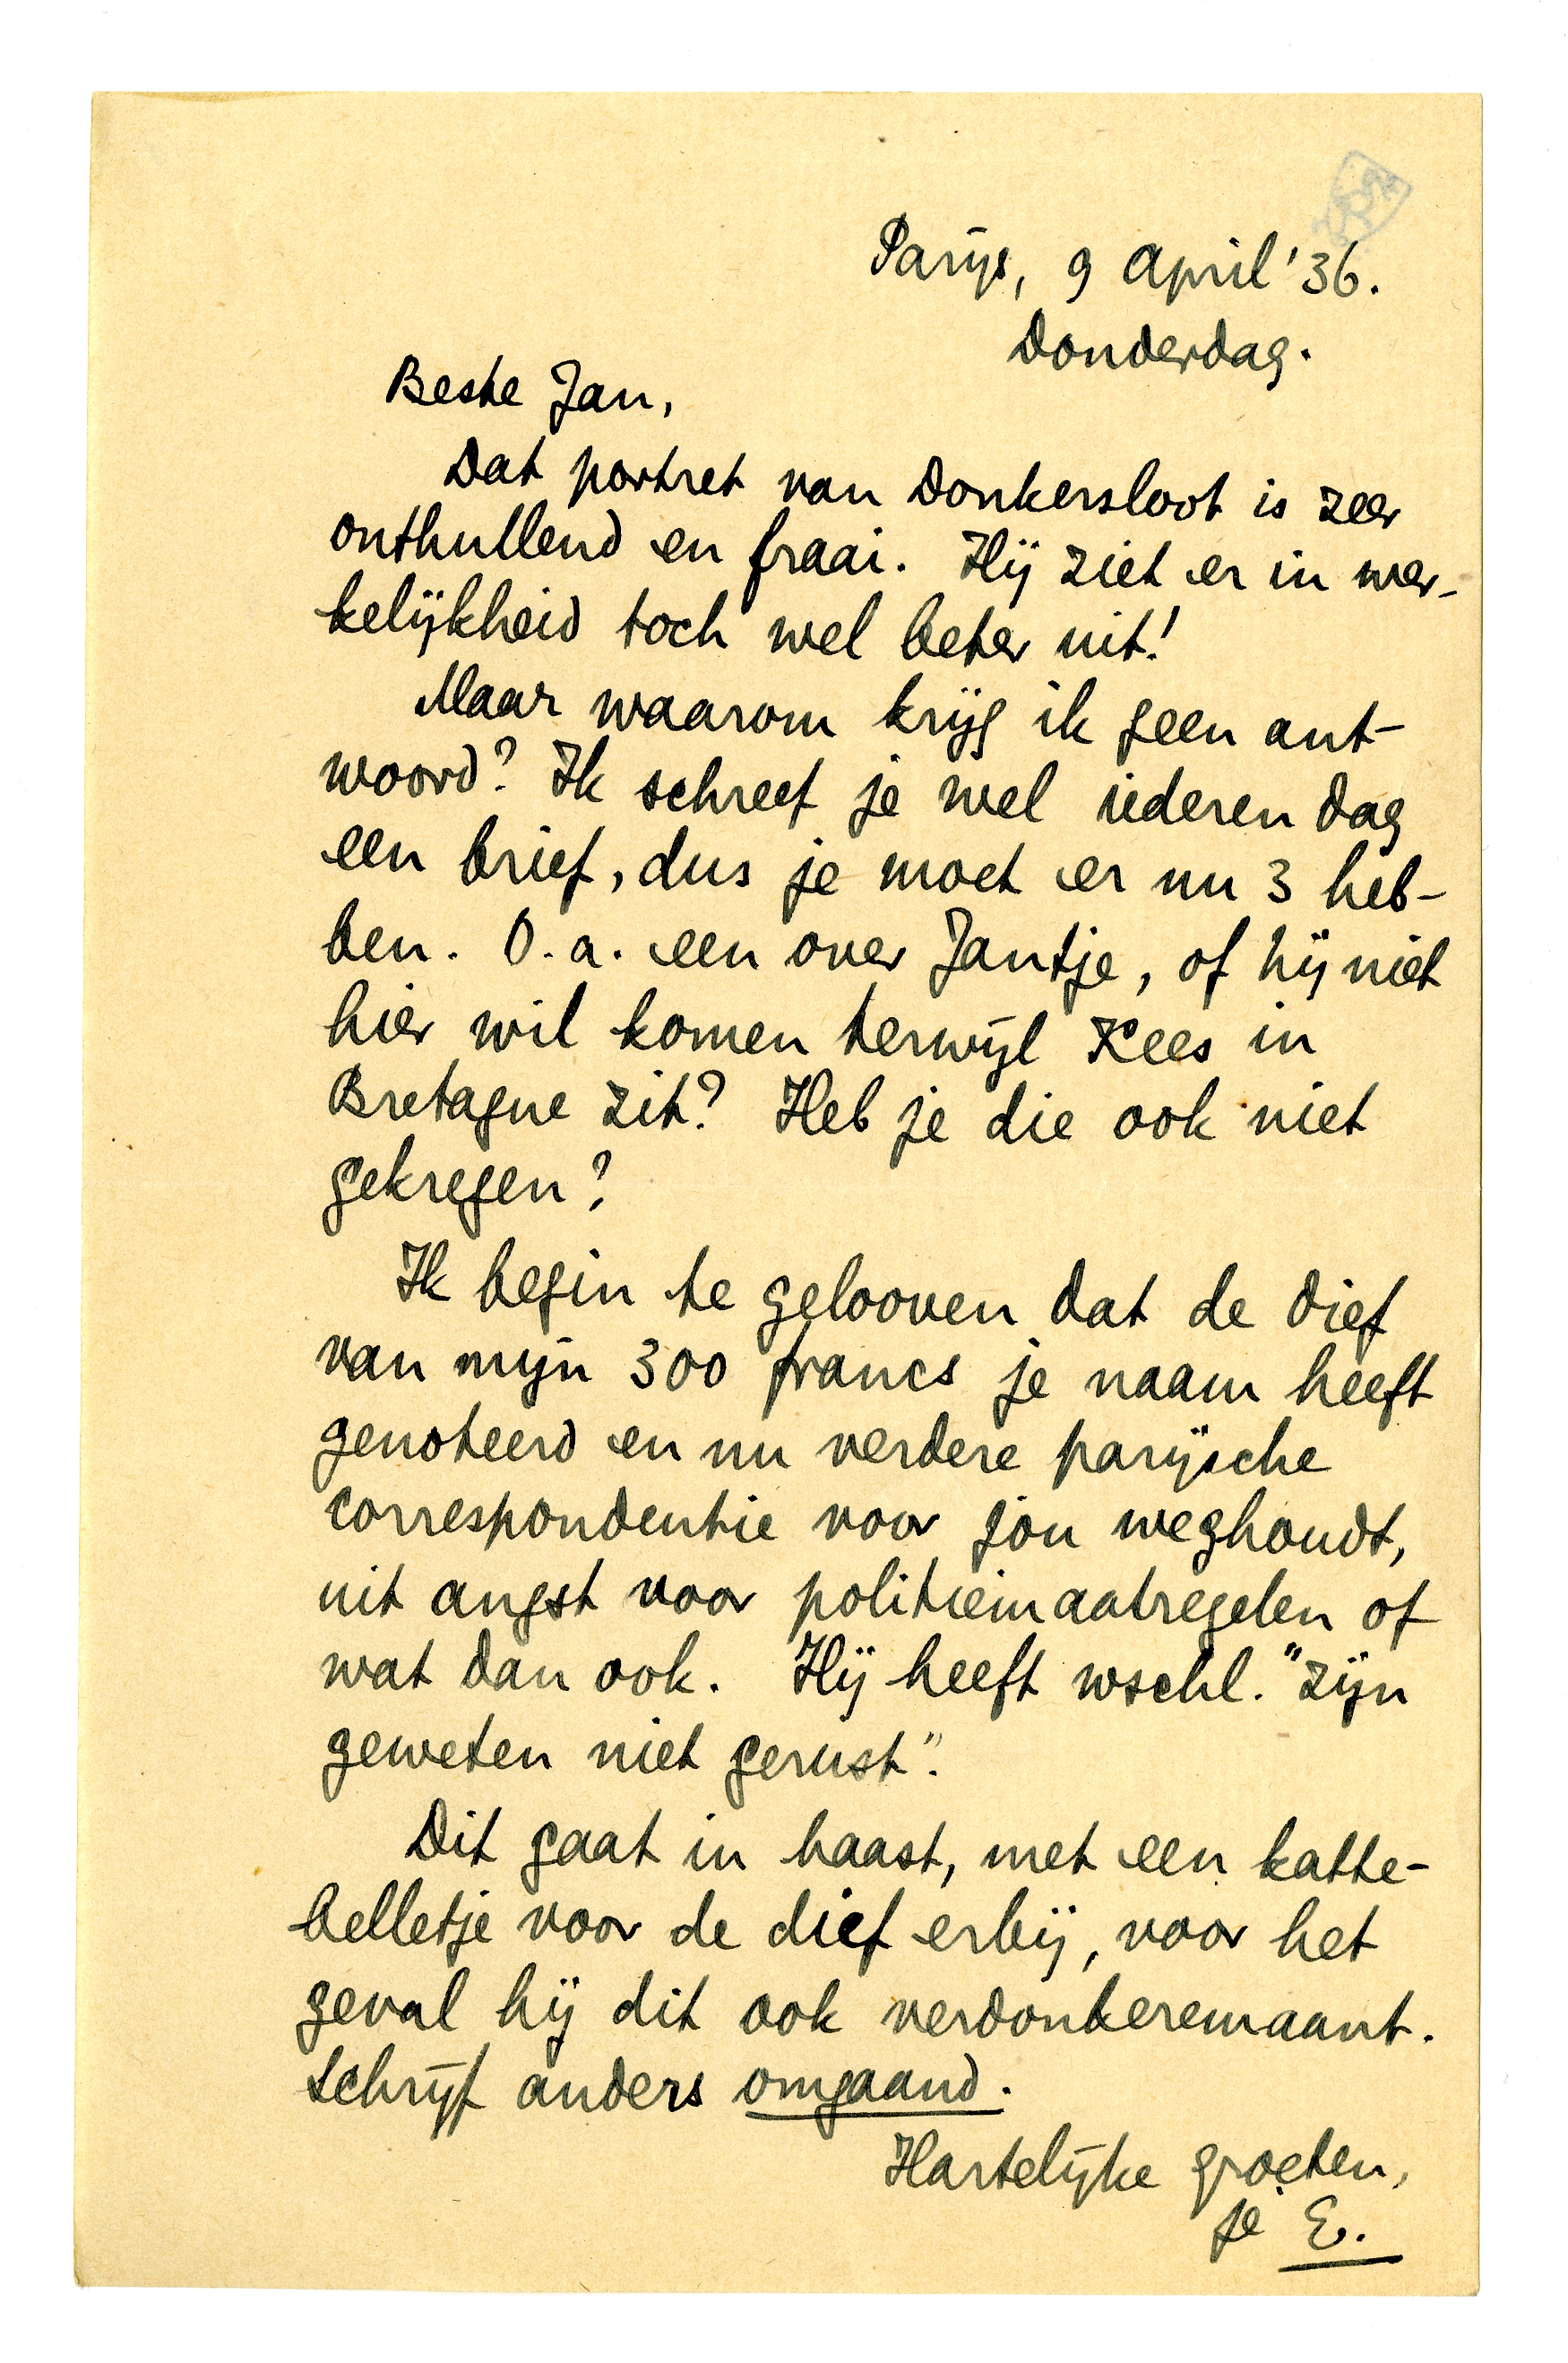 Parijs, 9 April '36.
Donderdag.
Beste Jan,
Dat portret van Donkersloot is zeer
onthullend en fraai. Hij ziet er in wer-
kelijkheid toch wel beter uit!
Maar waarom krijg ik geen ant-
woord? Ik schreef je wel iederen dag
een brief, dus je moet er nu 3 heb-
ben. O.a. een over Jantje, of hij niet
hier wil komen terwijl Kees in
Bretagne zit? Heb je die ook niet
gekregen?
Ik begin te gelooven dat de dief
van mijn 300 francs je naam heeft
genoteerd en nu verdere parijsche
correspondentie voor jou weghoudt,
uit angst voor politiemaatregelen of
wat dan ook. Hij heeft wschl. "zijn
geweten niet gerust".
Dit gaat in haast, met een katte-
belletje voor de dief erbij, voor het
geval hij dit ook verdonkeremaant.
Schrijf anders omgaand.
Hartelijke groeten,
je E.